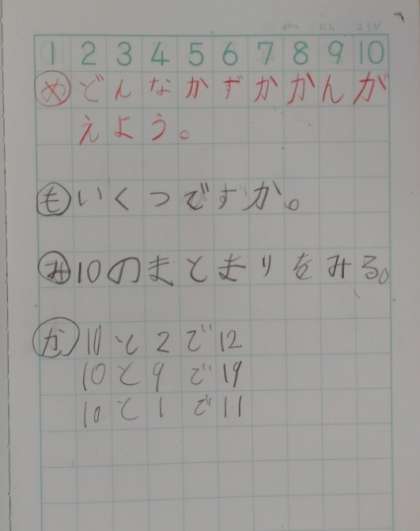 1 2 3 4 5 6 7 8 9 10
め どんなかずかかんが
えよう。
も いくつですか。
み 10のまとまりをみる。
か 10と2で12
10と9で19
10と1で11